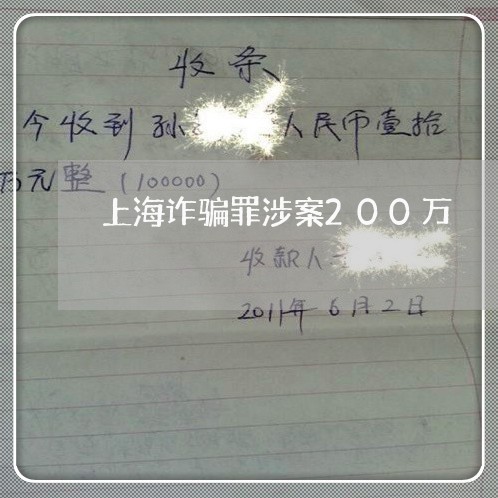 收条
今收到孙
人民币壹拾
万元整(100000)
上海诈骗罪涉案200万
收款人
2011年6月2日